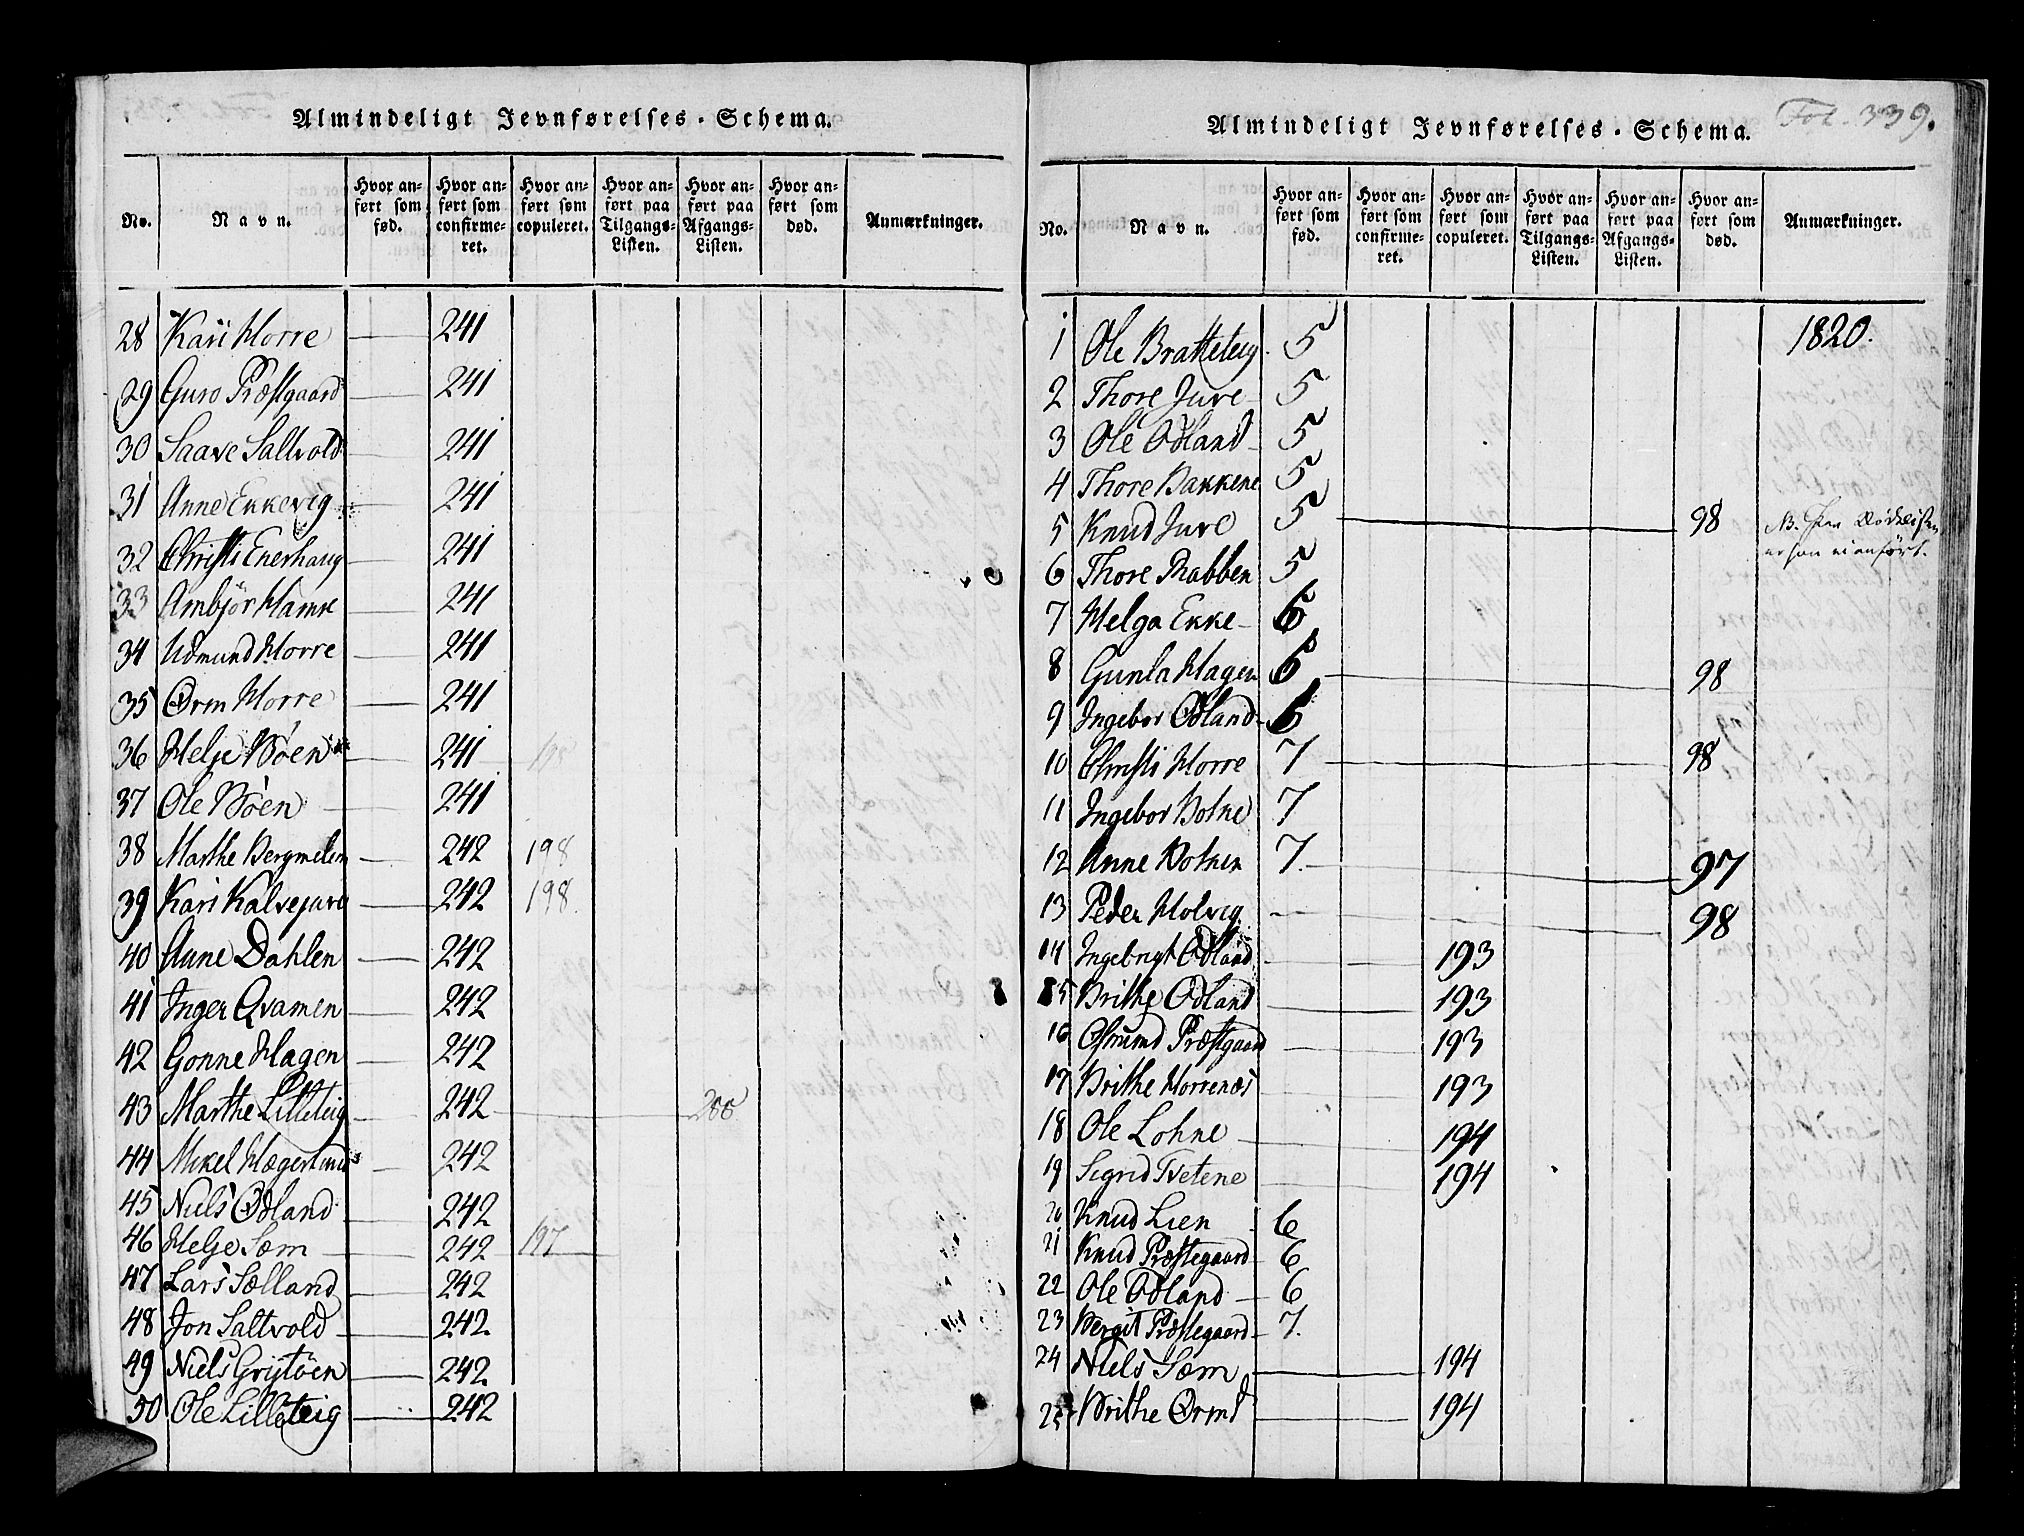 Almindeligt Jevnførelses-Schema.
No. Navn. Hvor anført som fød. Hvor anført som confirmeret. Hvor anført som copuleret. Hvor anført paa Tilgangs-Listen. Hvor anført paa Afgangs-Listen. Hvor anført som død. Anmærkninger.
28 Kari Horre 241
29 Guro Præstgaard 241
30 Saave Saltvold 241
31 Anne Ekkevig 241
32 Christi Enerhaug 241
33 Ambjør Hamre 241
34 Udmund Horre 241
35 Orm Horre 241
36 Helje Bøen 241 198
37 Ole Bøen 241
38 Marthe Bergmelem 242 198
39 Kari Kalvejuve 242 198.
40 Anne Dahlen 242
41 Inger Qvamen 242
42 Gonne Hagen 242
43 Marthe Lilleteig 242 288
44 Mikel Hægerlund 242
45 Niels Ødland 242
46 Helje Sæm 242 197
47 Lars Sælland 242
48 Jon Saltvold 242
49 Niels Grytøen 242
50 Ole Lilleteig 242
Almindeligt Jevnførelses-Schema.
Fol. 339.
No. Navn. Hvor anført som fød. Hvor anført som confirmeret. Hvor anført som copuleret. Hvor anført paa Tilgangs-Listen. Hvor anført paa Afgangs-Listen. Hvor anført som død. Anmærkninger.
1 Ole Bratteteig 5 1820.
2 Thore Juve 5
3 Ole Ødland 5
4 Thore Bakkene 5
5 Knud Juve 5 98 NB. paa Dødslisten
er han ei anført.
6 Thore Rabben 5
7 Helga Ekke 6
8 Gunla Hagen 6 98
9 Ingebor Ødland 6
10 Christi Horre 7 98
11 Ingebor Botne 7
12 Anne Botnen 7. 97
13 Peder Holvig 98
14 Ingebrigt Ødland 193
15 Brithe Ødland 193
16 Osmund Præstgaard 193
17 Brithe Horrenæs 193
18 Ole Lohne 194
19 Sigrid Tvetene 194
20 Knud Lien 6
21 Knud Præstegaard 6
22 Ole Ødland 6
23 Bergit Præstegaard 7.
24 Niels Sæm 194
25 Brithe Ormsd 194